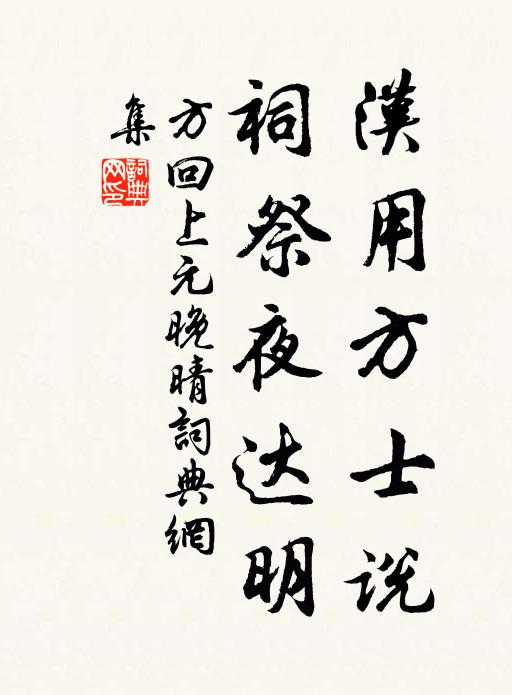 漢用方士说
祠祭夜达明
方回上元晚晴詞典網
集
詞典網印